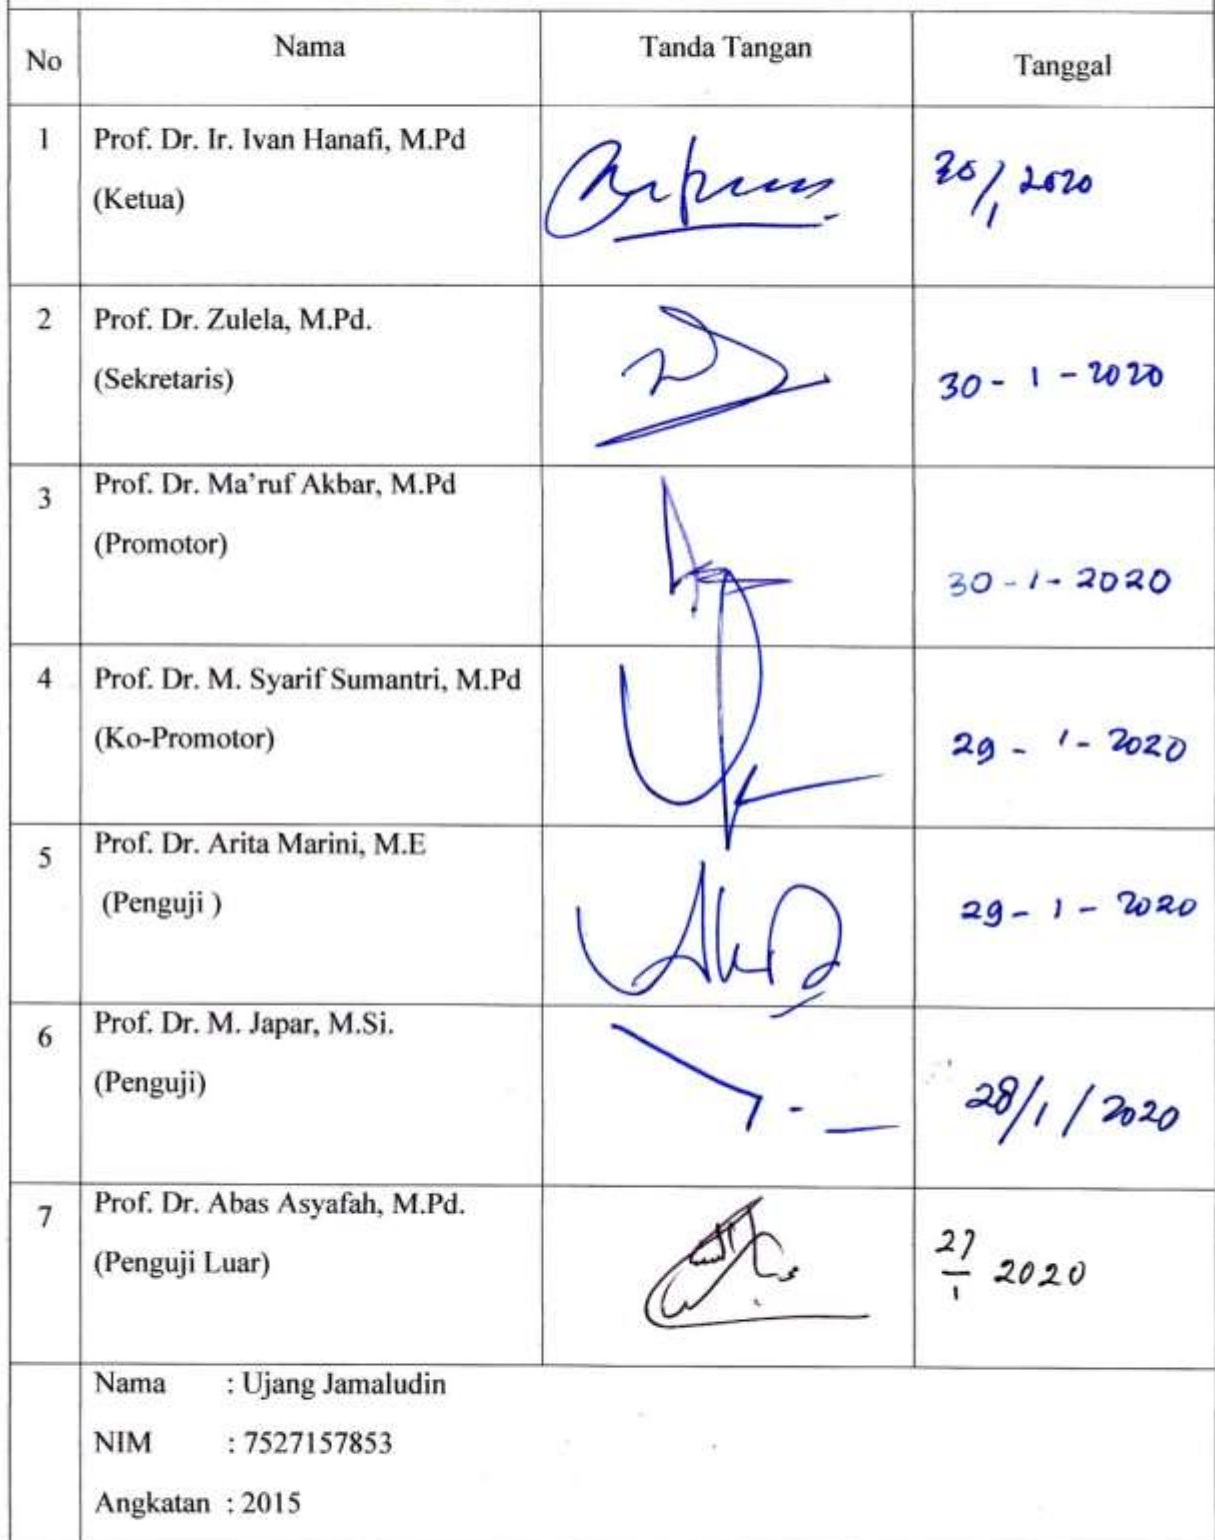 No Nama Tanda Tangan Tanggal
1 Prof. Dr. Ir. Ivan Hanafi, M.Pd
(Ketua)
30/1 2020
2 Prof. Dr. Zulela, M.Pd.
(Sekretaris)
30 - 1 - 2020
3 Prof. Dr. Ma'ruf Akbar, M.Pd
(Promotor)
30 - 1 - 2020
4 Prof. Dr. M. Syarif Sumantri, M.Pd
(Ko-Promotor)
29 - 1 - 2020
5 Prof. Dr. Arita Marini, M.E
(Penguji )
29 - 1 - 2020
6 Prof. Dr. M. Japar, M.Si.
(Penguji)
28/1 / 2020
7 Prof. Dr. Abas Asyafah, M.Pd.
(Penguji Luar)
27/1 2020
Nama : Ujang Jamaludin
NIM : 7527157853
Angkatan : 2015